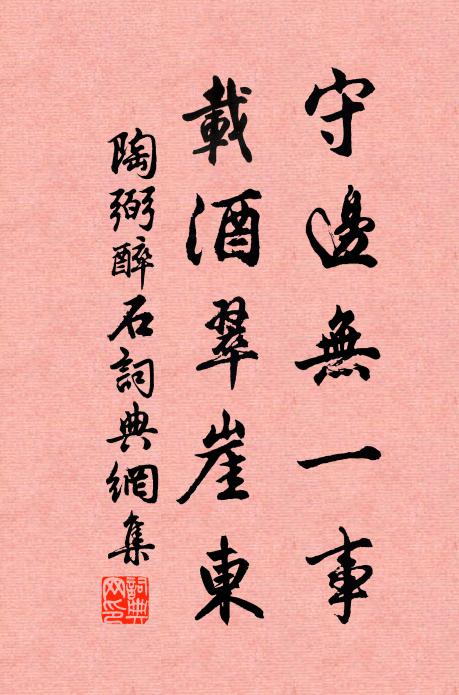 守邊無一事
載酒翠崖東
陶弼醉石詞典網集
詞典網印